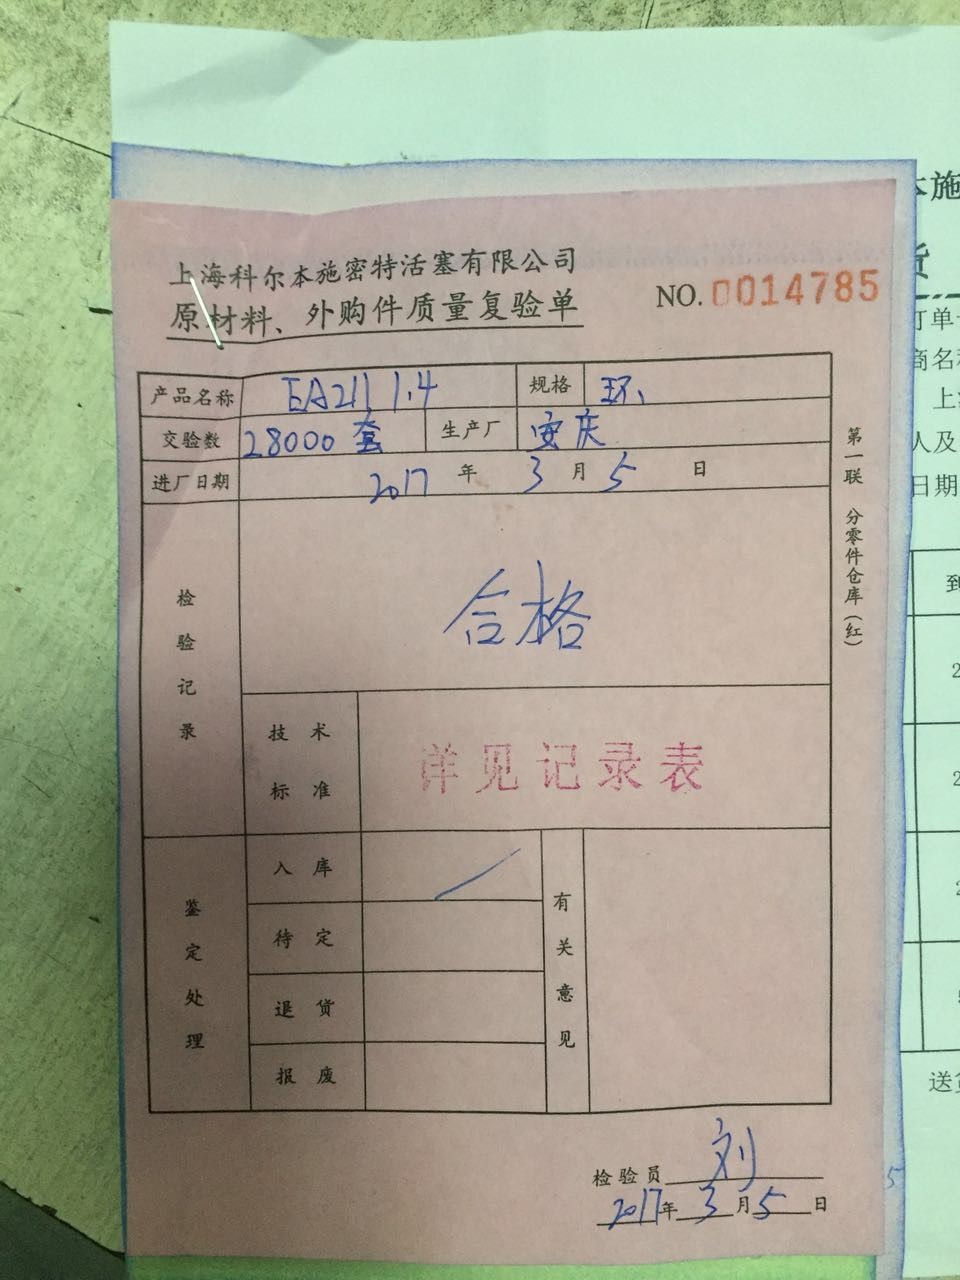 上海科尔本施密特活塞有限公司
原材料、外购件质量复验单
NO. 0014785
产品名称 EA211 1.4 规格 环
交验数 28000套 生产厂 安庆
进厂日期 2017 年 3 月 5 日
检验记录 合格
技术标准 详见记录表
鉴定处理
入库
待定
退货
报废
有关意见
第一联 分零件仓库(红)
检验员 刘
2017年3月5日
本施
订单
商名称
上海
人及
日期
到
2
2
2
送货
5